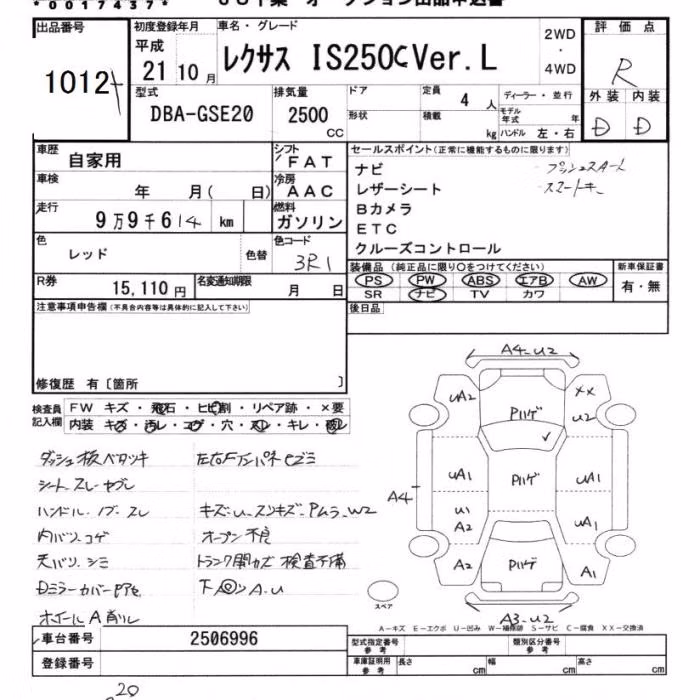 *0017437*
出品番号
1012
初度登録年月
平成
21 10 月
車名・グレード
レクサス IS250C Ver.L
2WD
・
4WD
評価点
R
外装 内装
D D
型式
DBA-GSE20
排気量
2500
CC
ドア
形状
定員
4 人
積載
kg
ディーラー・並行
モデル年式 年
ハンドル 左・右
車歴
自家用
シフト
FAT
車検
年 月( 日)
冷房
AAC
走行
9万9千614 km
燃料
ガソリン
色
レッド
色替
色コード
3R1
R券
15,110 円
名変通知期限
月 日
セールスポイント(正常に機能するものに限ります)
ナビ プッシュスタート
レザーシート スマートキー
Bカメラ
ETC
クルーズコントロール
装備品 (純正品に限り○をつけてください)
PS PW ABS エアB AW
SR ナビ TV カワ
新車保証書
有・無
後日品
注意事項申告欄(不具合内容等は具体的に記入して下さい)
修復歴 有〔箇所 〕
検査員
記入欄
FW キズ・飛石・ヒビ割・リペア跡・×要
内装 キズ・汚レ・コゲ・穴・スレ・キレ・破レ
ダッシュ板ベタツキ
シートスレ ヤブレ
ハンドル ノブ スレ
キズ U スリキズ Pムラ W2
内バリ コゲ
オープン不良
天バリ シミ
トランク開カズ 検査不備
Dミラーカバー
ホイールA
A4-U2
UA2
Pハゲ
XX
U2
A4
UA1
Pハゲ
UA1
U1
A2
UA1
A2
Pハゲ
A1
A3-U2
スペア
A-キズ E-エクボ U-凹み W-補修跡 S-サビ C-腐食 XX-交換済
車台番号 2506996
登録番号
型式指定番号
参考
類別区分番号
参考
車庫証明用
参考
長さ cm
幅 cm
高さ cm
20